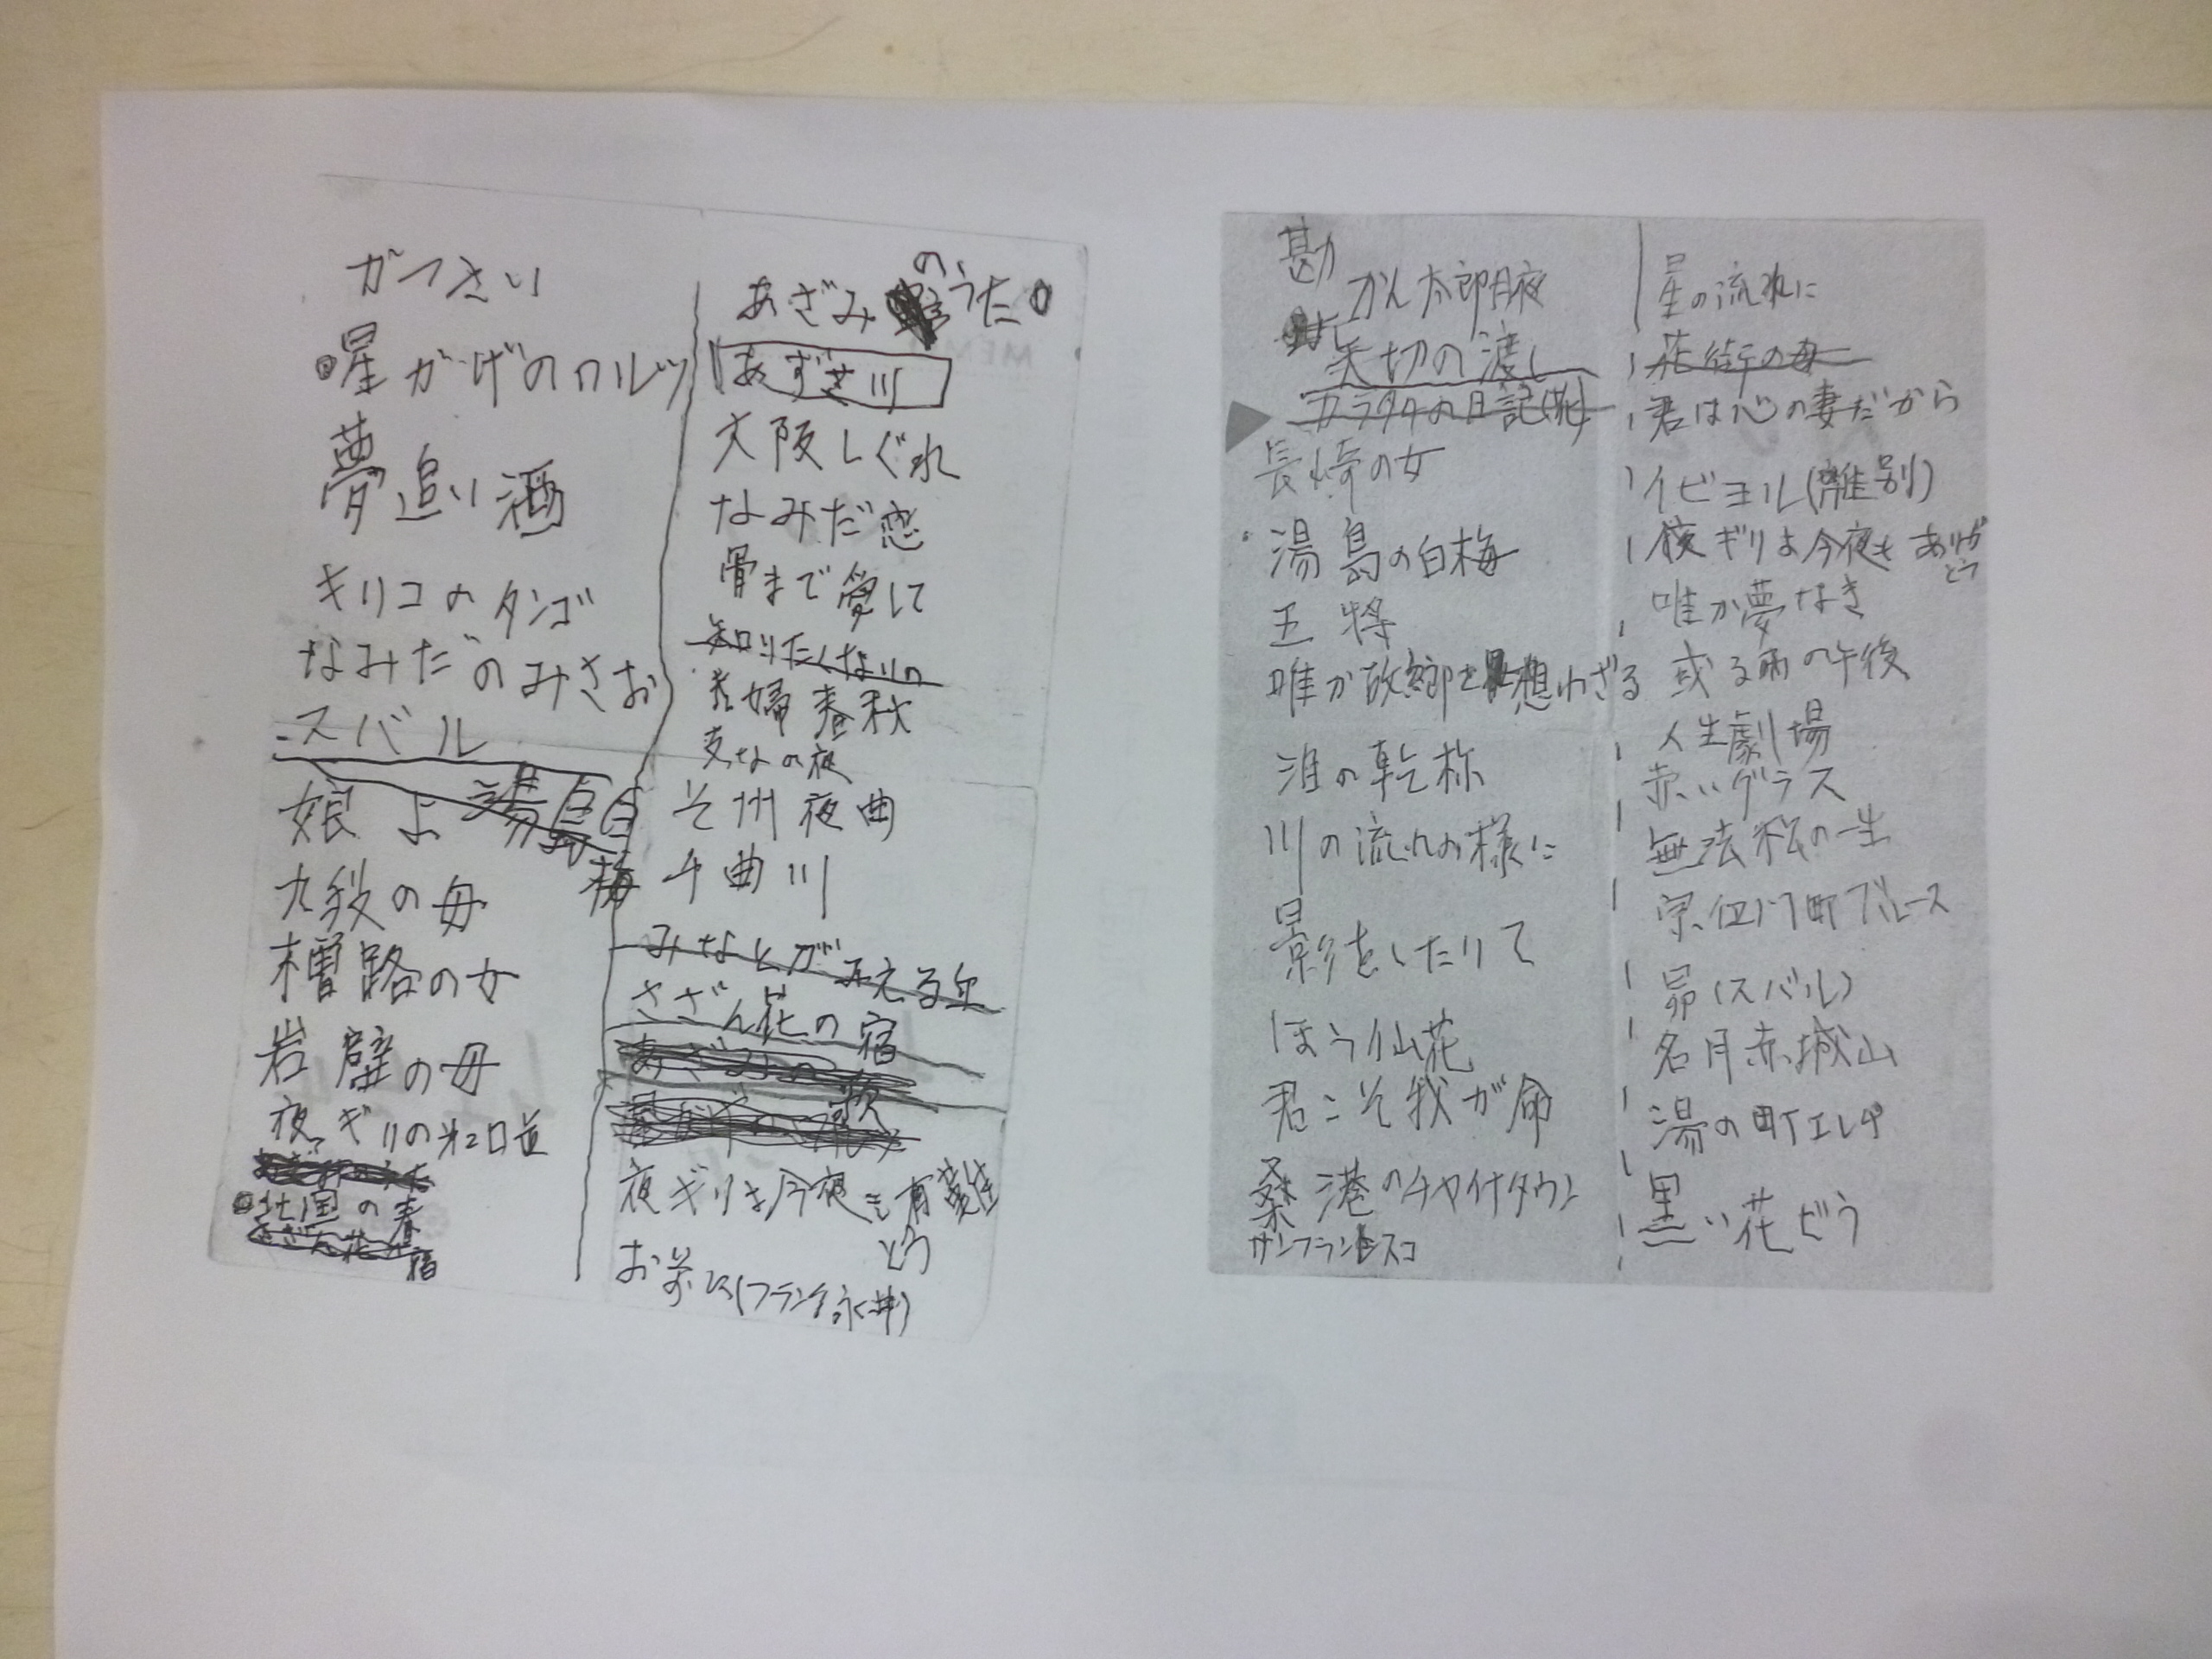 がっさい
星かげのワルツ
夢追い酒
キリコのタンゴ
なみだのみさお
スバル
娘よ 湯島白
梅
九段の母
岩壁の母
北国の春
宿
あざみのうた
あずさ川
大阪しぐれ
なみだ恋
骨まで愛して
知りたくないの
夫婦春秋
支なの夜
そ州夜曲
千曲川
みなとが みえる丘
さざん花の宿
あざみの歌
夜ギリよ今夜も有難
とう
お前に(フランク永井)
勘
かん太郎月夜
矢切の渡し
カラタチの日記
長崎の女
湯島の白梅
王将
唯か故郷を想わざる
川の流れの様に
影をしたいて
ほう仙花
君こそ我が命
桑港のチャイナタウン
サンフランシスコ
星の流れに
花街の母
君は心の妻だから
イビヨル(離別)
夜ギリよ今夜も ありが
とう
唯か夢なき
或る雨の午後
人生劇場
赤いグラス
無法松の一生
宗右衛門町ブルース
昴(スバル)
名月赤城山
湯の町エレヂ
黒い花びら